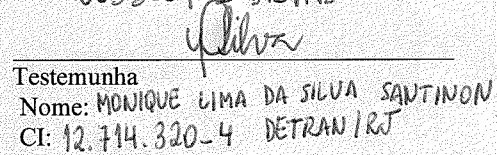 Silva
Testemunha
Nome: MONIQUE LIMA DA SILVA SANTINON
CI: 12.714.320-4 DETRAN/RJ